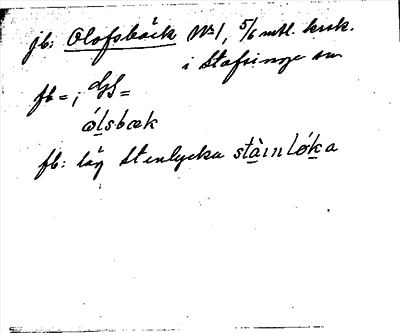 jb: Olofsbäck Nr 1, 5/6 mtl. krsk.
i Stafsinge sn
fb = i dgs =
ólsbæk
fb: läg Stenlycka stàinlóka